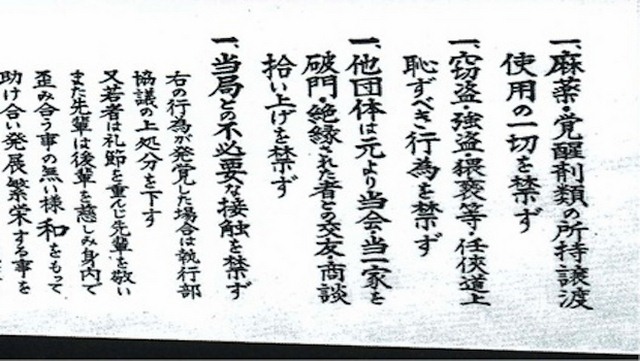 一、麻薬・覚醒剤類の所持譲渡
使用の一切を禁ず
一、窃盗・強盗・猥褻等・任侠道上
恥ずべき行為を禁ず
一、他団体は元より当会・当一家を
破門・絶縁された者との交友・商談
拾い上げを禁ず
一、当局との不必要な接触を禁ず
右の行為が発覚した場合は執行部
協議の上処分を下す
又若者は礼節を重んじ先輩を敬い
また先輩は後輩を慈しみ身内で
歪み合う事の無い様和をもって
助け合い発展繁栄する事を